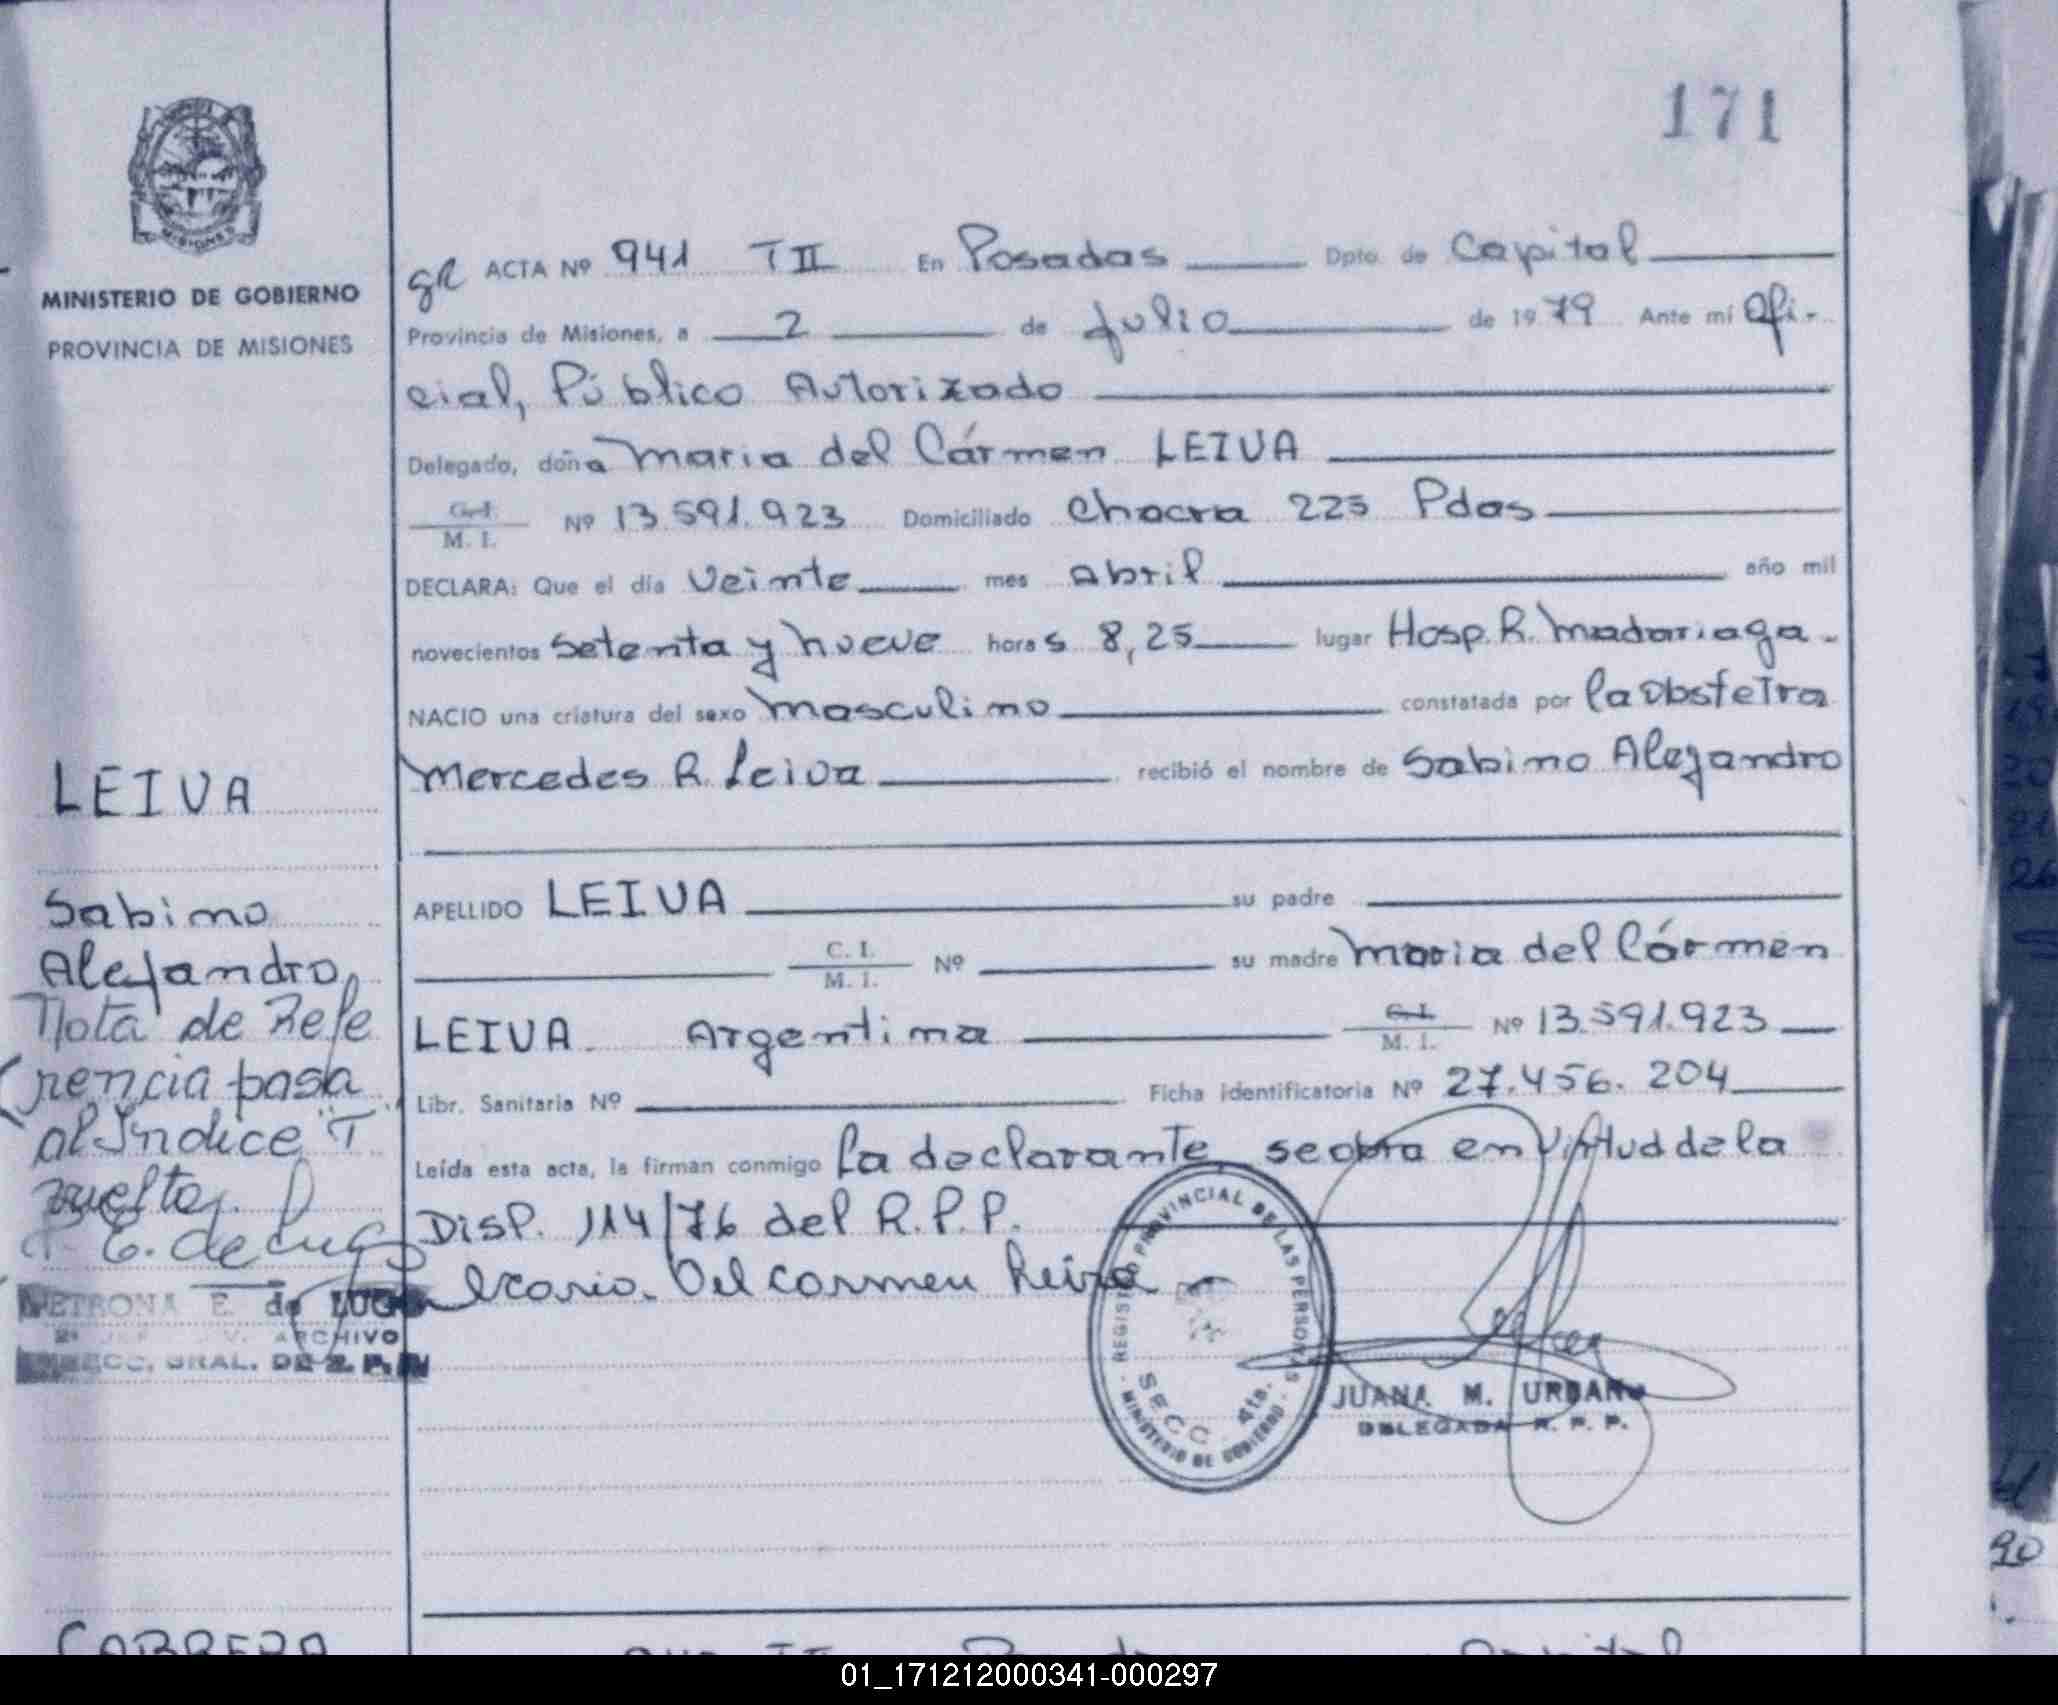 171
MISIONES
MINISTERIO DE GOBIERNO
PROVINCIA DE MISIONES
LEIVA
Sabino
Alejandro
Nota de Refe
rencia pasa
al Indice "T
E. de Lugo
PETRONA E. de LUGO
ARCHIVO
GRAL. DE
gR ACTA Nº 941 TII En Posadas Dpto. de Capital
Provincia de Misiones, a 2 de Julio de 1979 Ante mí Ofi-
cial, Público Autorizado
Delegado, doña Maria del Cármen LEIVA
C. I. M. I. Nº 13.591.923 Domiciliado Chacra 225 Pdas
DECLARA: Que el día Veinte mes Abril año mil
novecientos Setenta y nueve horas 8,25 lugar Hosp. R. Madariaga.
NACIO una criatura del sexo Masculino constatada por la Obstetra
Mercedes R. Leiva recibió el nombre de Sabino Alejandro
APELLIDO LEIVA su padre
C. I. M. I. Nº su madre Maria del Cármen
LEIVA. Argentina C. I. M. I. Nº 13.591.923
Libr. Sanitaria Nº Ficha identificatoria Nº 27.456.204
Leída esta acta, la firman conmigo la declarante, se obra en virtud de la
Disp. 114/76 del R.P.P.
Maria Del Carmen Leiva
REGISTRO PROVINCIAL DE LAS PERSONAS
SECC. 4ta.
- MINISTERIO DE GOBIERNO -
JUANA M. URBAN
DELEGADA R. P. P.
CABRERA
90
01_171212000341-000297